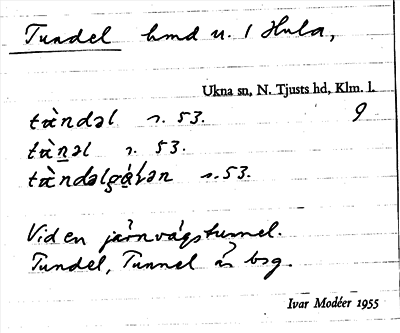 Tundel hmd u. / Hula,
Ukna sn, N. Tjusts hd, Klm. l.
tὰndəl s. 53. 9
tὰn̲əl s. 53.
s. 53.
Vid en järnvägstunnel.
Tundel, Tunnel är bsg.
Ivar Modéer 1955